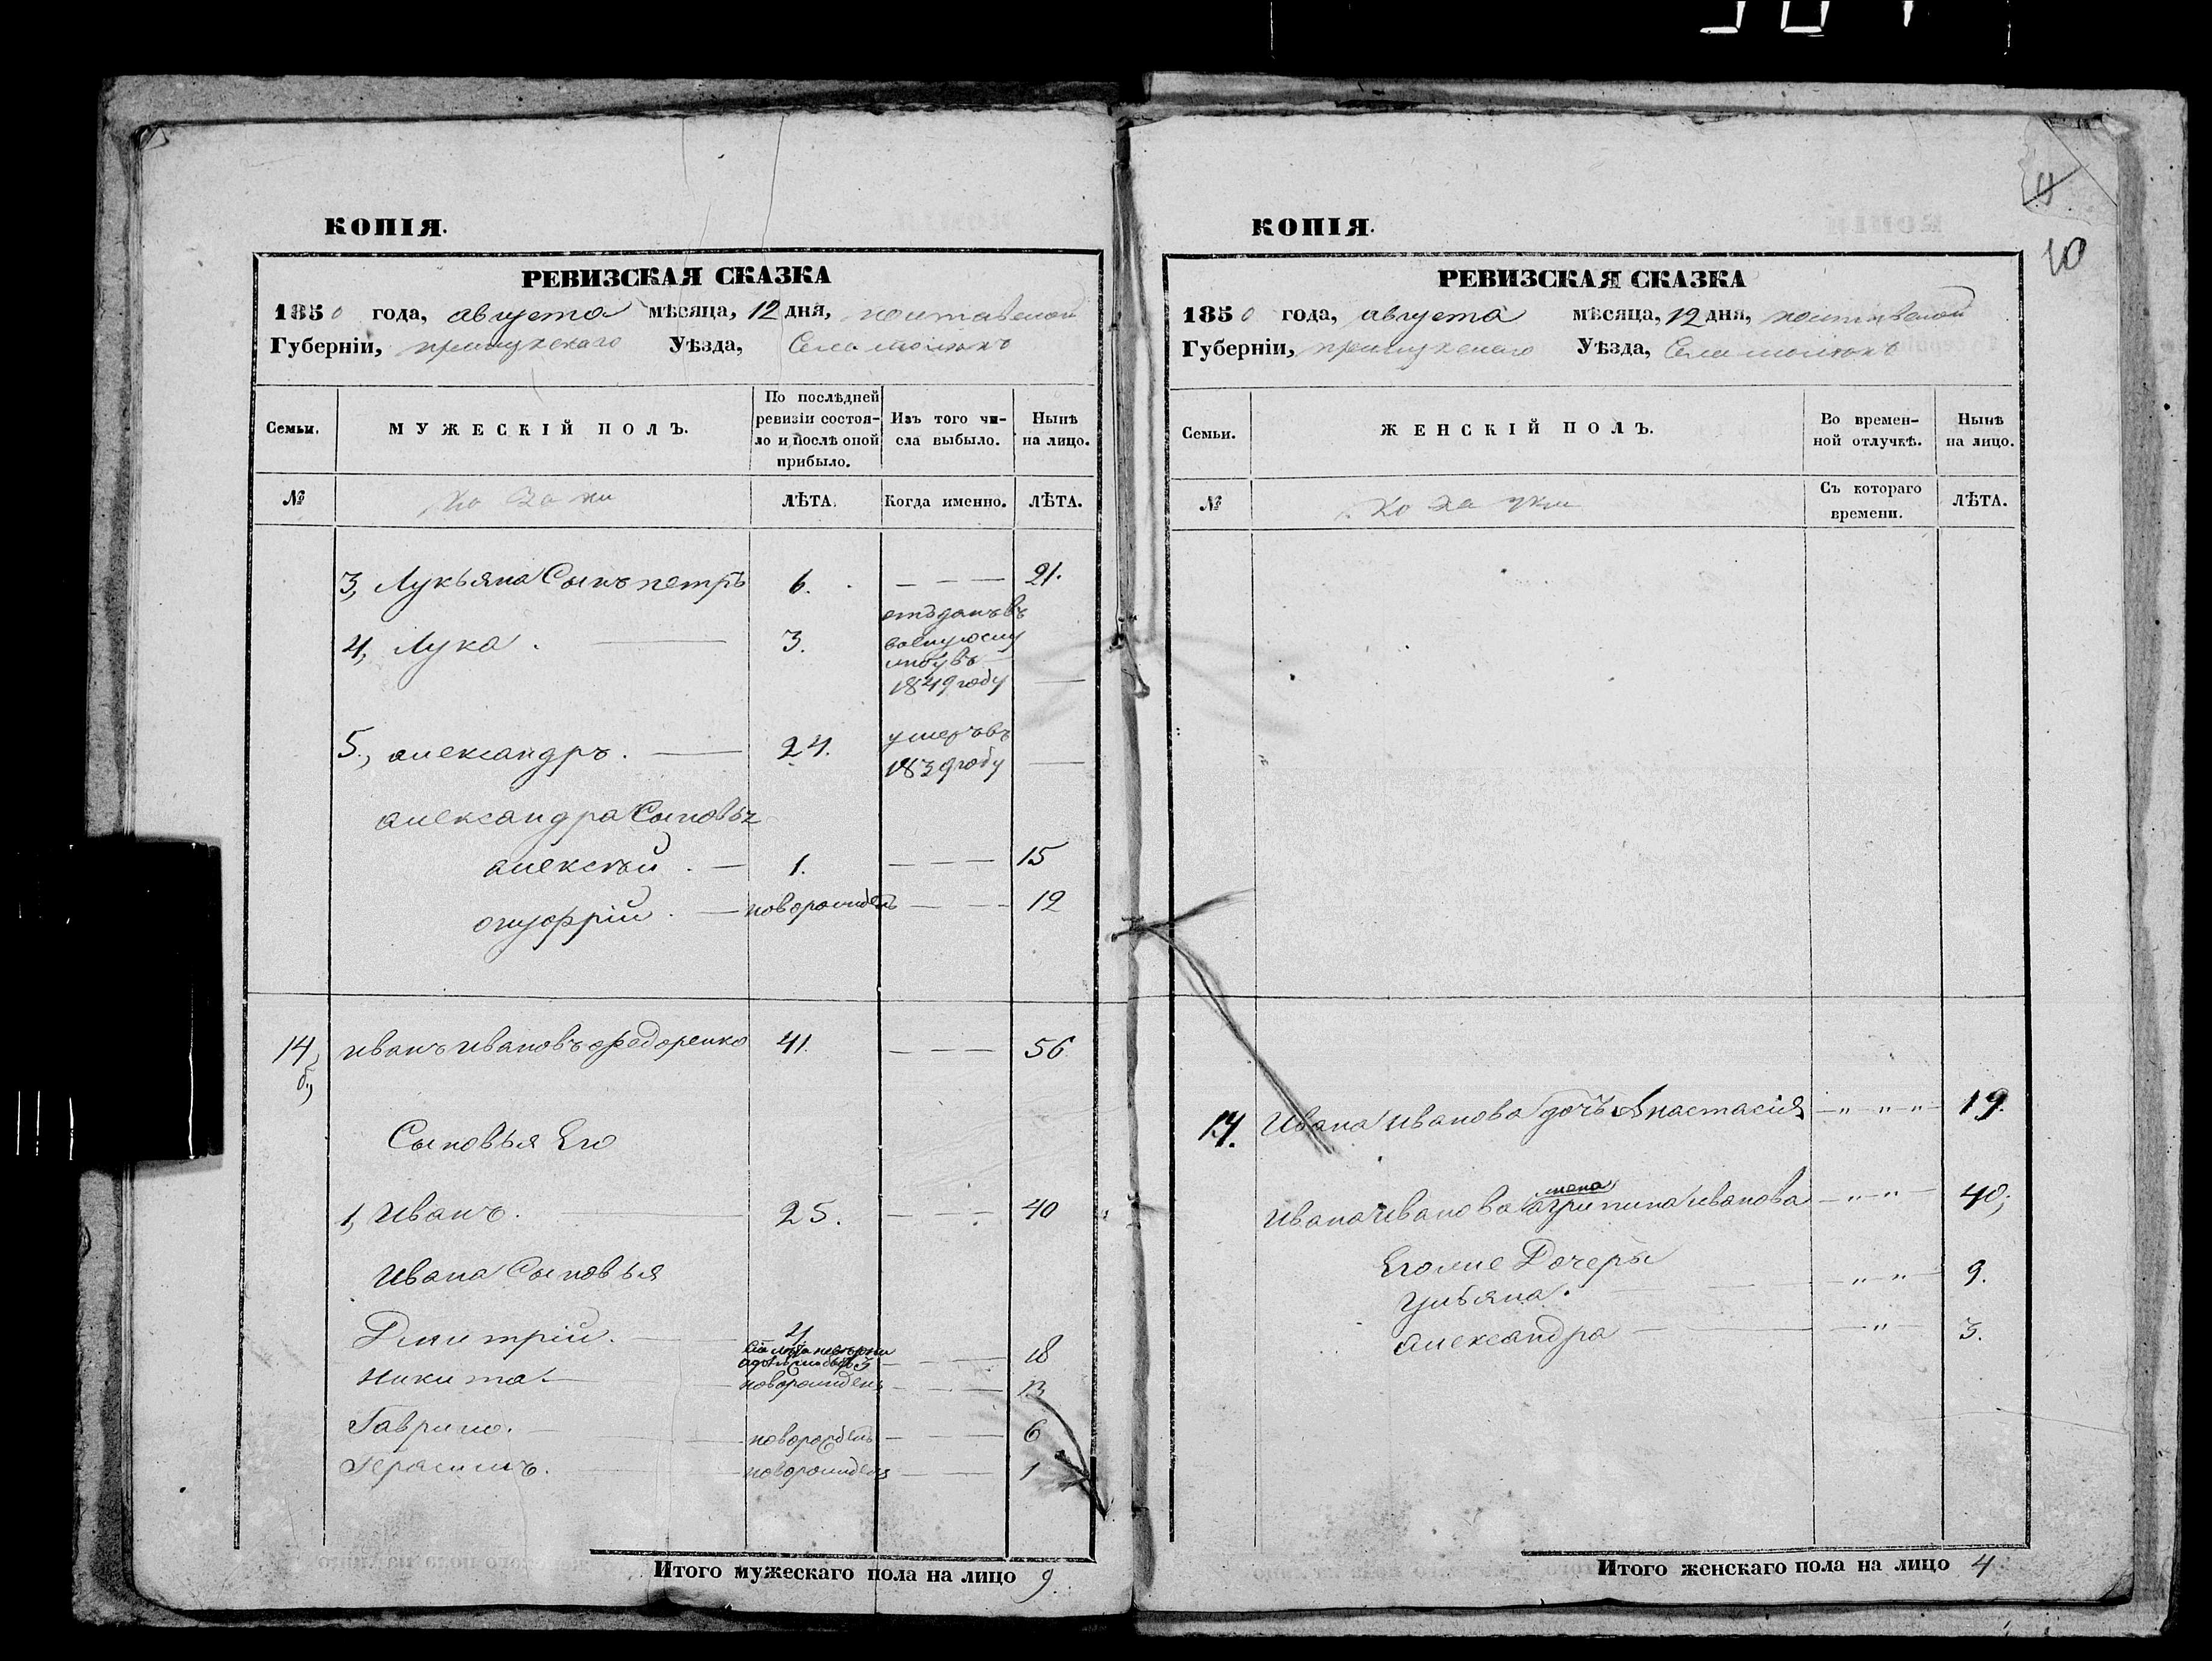 КОПІЯ.
РЕВИЗСКАЯ СКАЗКА
1850 года, августа мѣсяца, 12 дня, полтавской
Губерніи, прилукскаго Уѣзда, Села
Семьи.
МУЖЕСКІЙ ПОЛЪ.
По послѣдней ревизіи состояло и послѣ оной прибыло.
Изъ того числа выбыло.
Нынѣ на лицо.
№
козаки
ЛѢТА.
Когда именно.
ЛѢТА.
3, Лукьяна Сынъ петръ 6. — — — 21.
4, Лука. — 3. отъданъ въ
1849 году —
5, александръ. — 24. умеръ въ
1839 году —
александра Сыновья
алексѣй. — 1. — — — 15
онуфрій. — новорожденъ — — — 12
14, иванъ ивановъ федоренко 41. — — — 56
б,
Сыновья Его
1, Иванъ. — 25. — — — 40
Ивана Сыновья
Дмитрій. — 4 — — — 18
Никита. — новорожденъ — — — 13
Гаврило. — новорожденъ — — — 6
Герасимъ. — новорожденъ — — — 1
Итого мужескаго пола на лицо 9.
10
КОПІЯ.
РЕВИЗСКАЯ СКАЗКА
1850 года, августа мѣсяца, 12 дня, полтавской
Губерніи, прилукскаго Уѣзда, Села
Семьи.
ЖЕНСКІЙ ПОЛЪ.
Во временной отлучкѣ.
Нынѣ на лицо.
№
козачки
Съ котораго времени.
ЛѢТА.
14. Ивана иванова дочь Анастасія — „ „ „ — 19.
жена
Ивана иванова агрипина иванова — „ „ — 40,
Его же Дочеры
Ульяна. — „ „ — 9.
александра — — „ — 3.
Итого женскаго пола на лицо 4